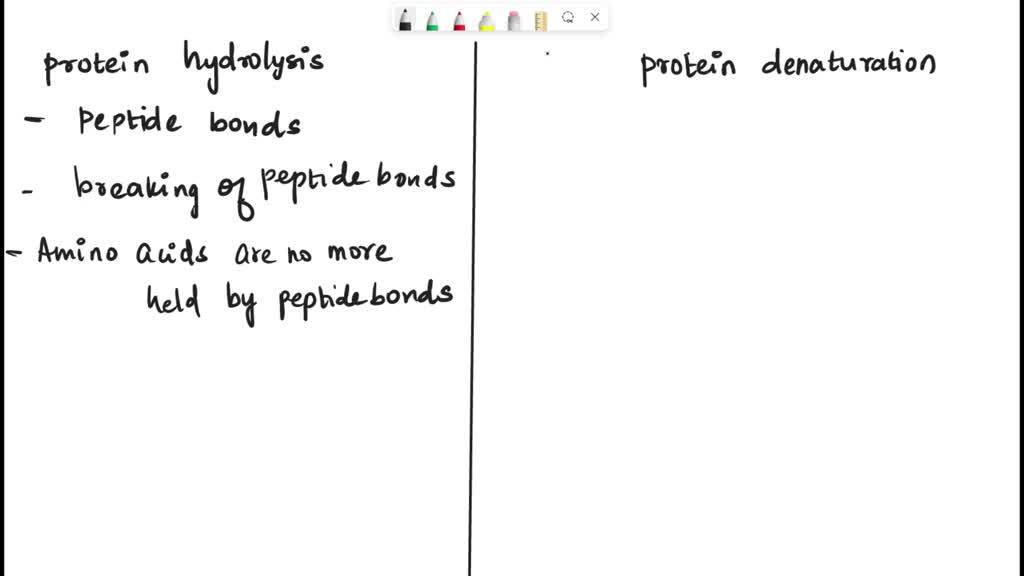 protein hydrolysis
- peptide bonds
- breaking of peptide bonds
- Amino acids are no more
held by peptide bonds
protein denaturation